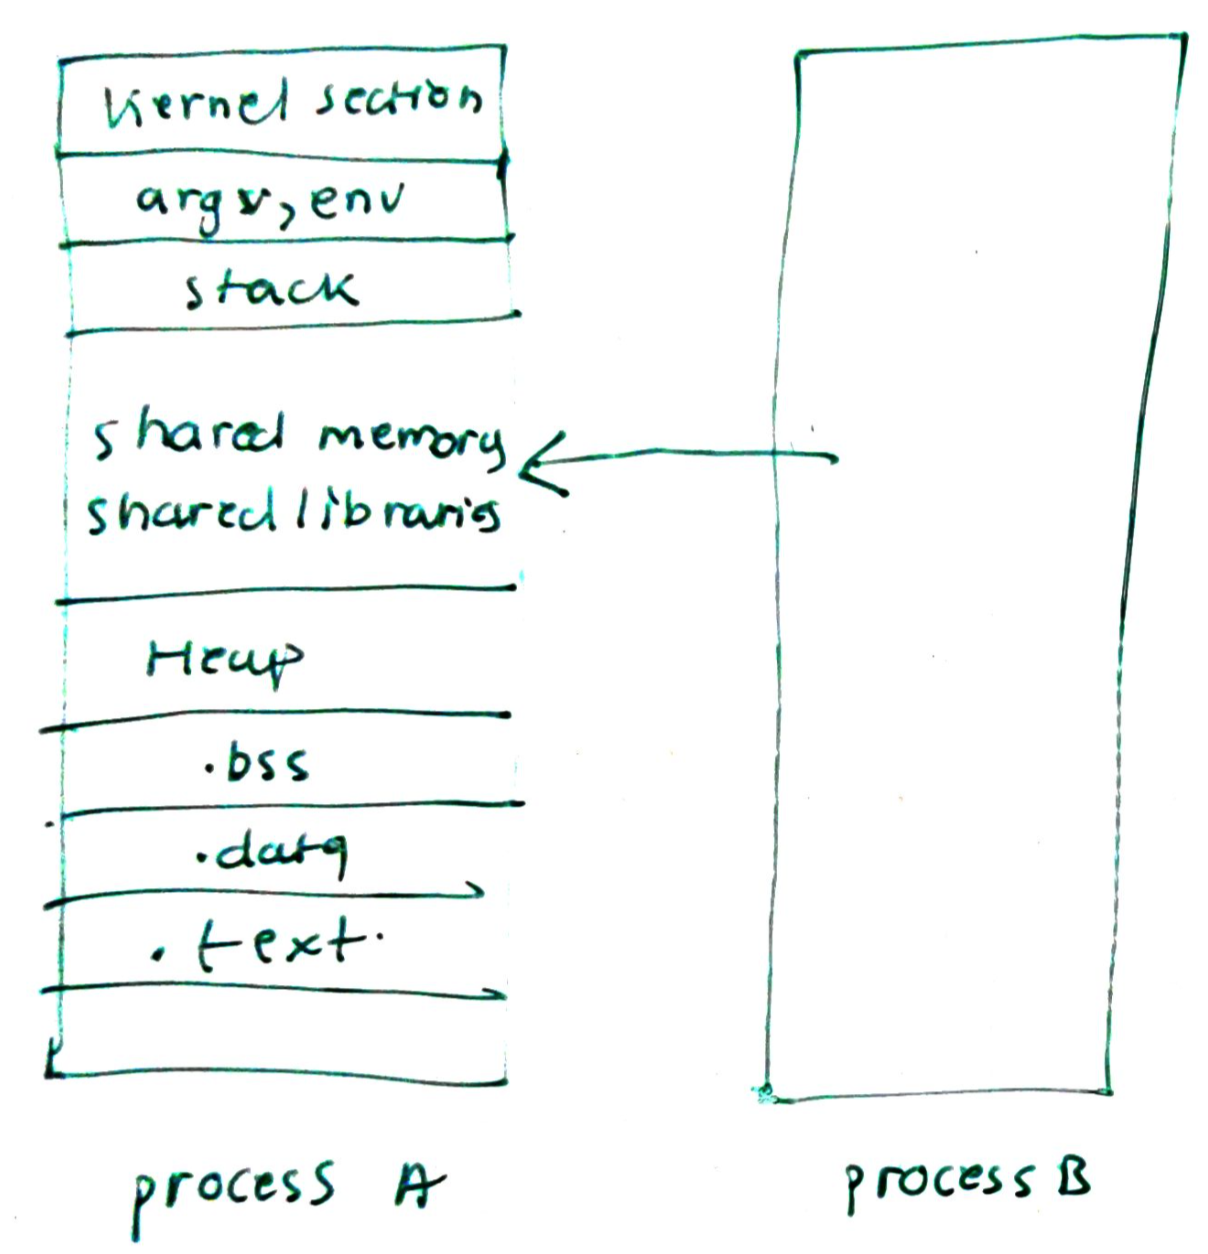 Kernel section
argv, env
stack
shared memory
shared libraries
Heap
.bss
.data
.text.
process A
process B